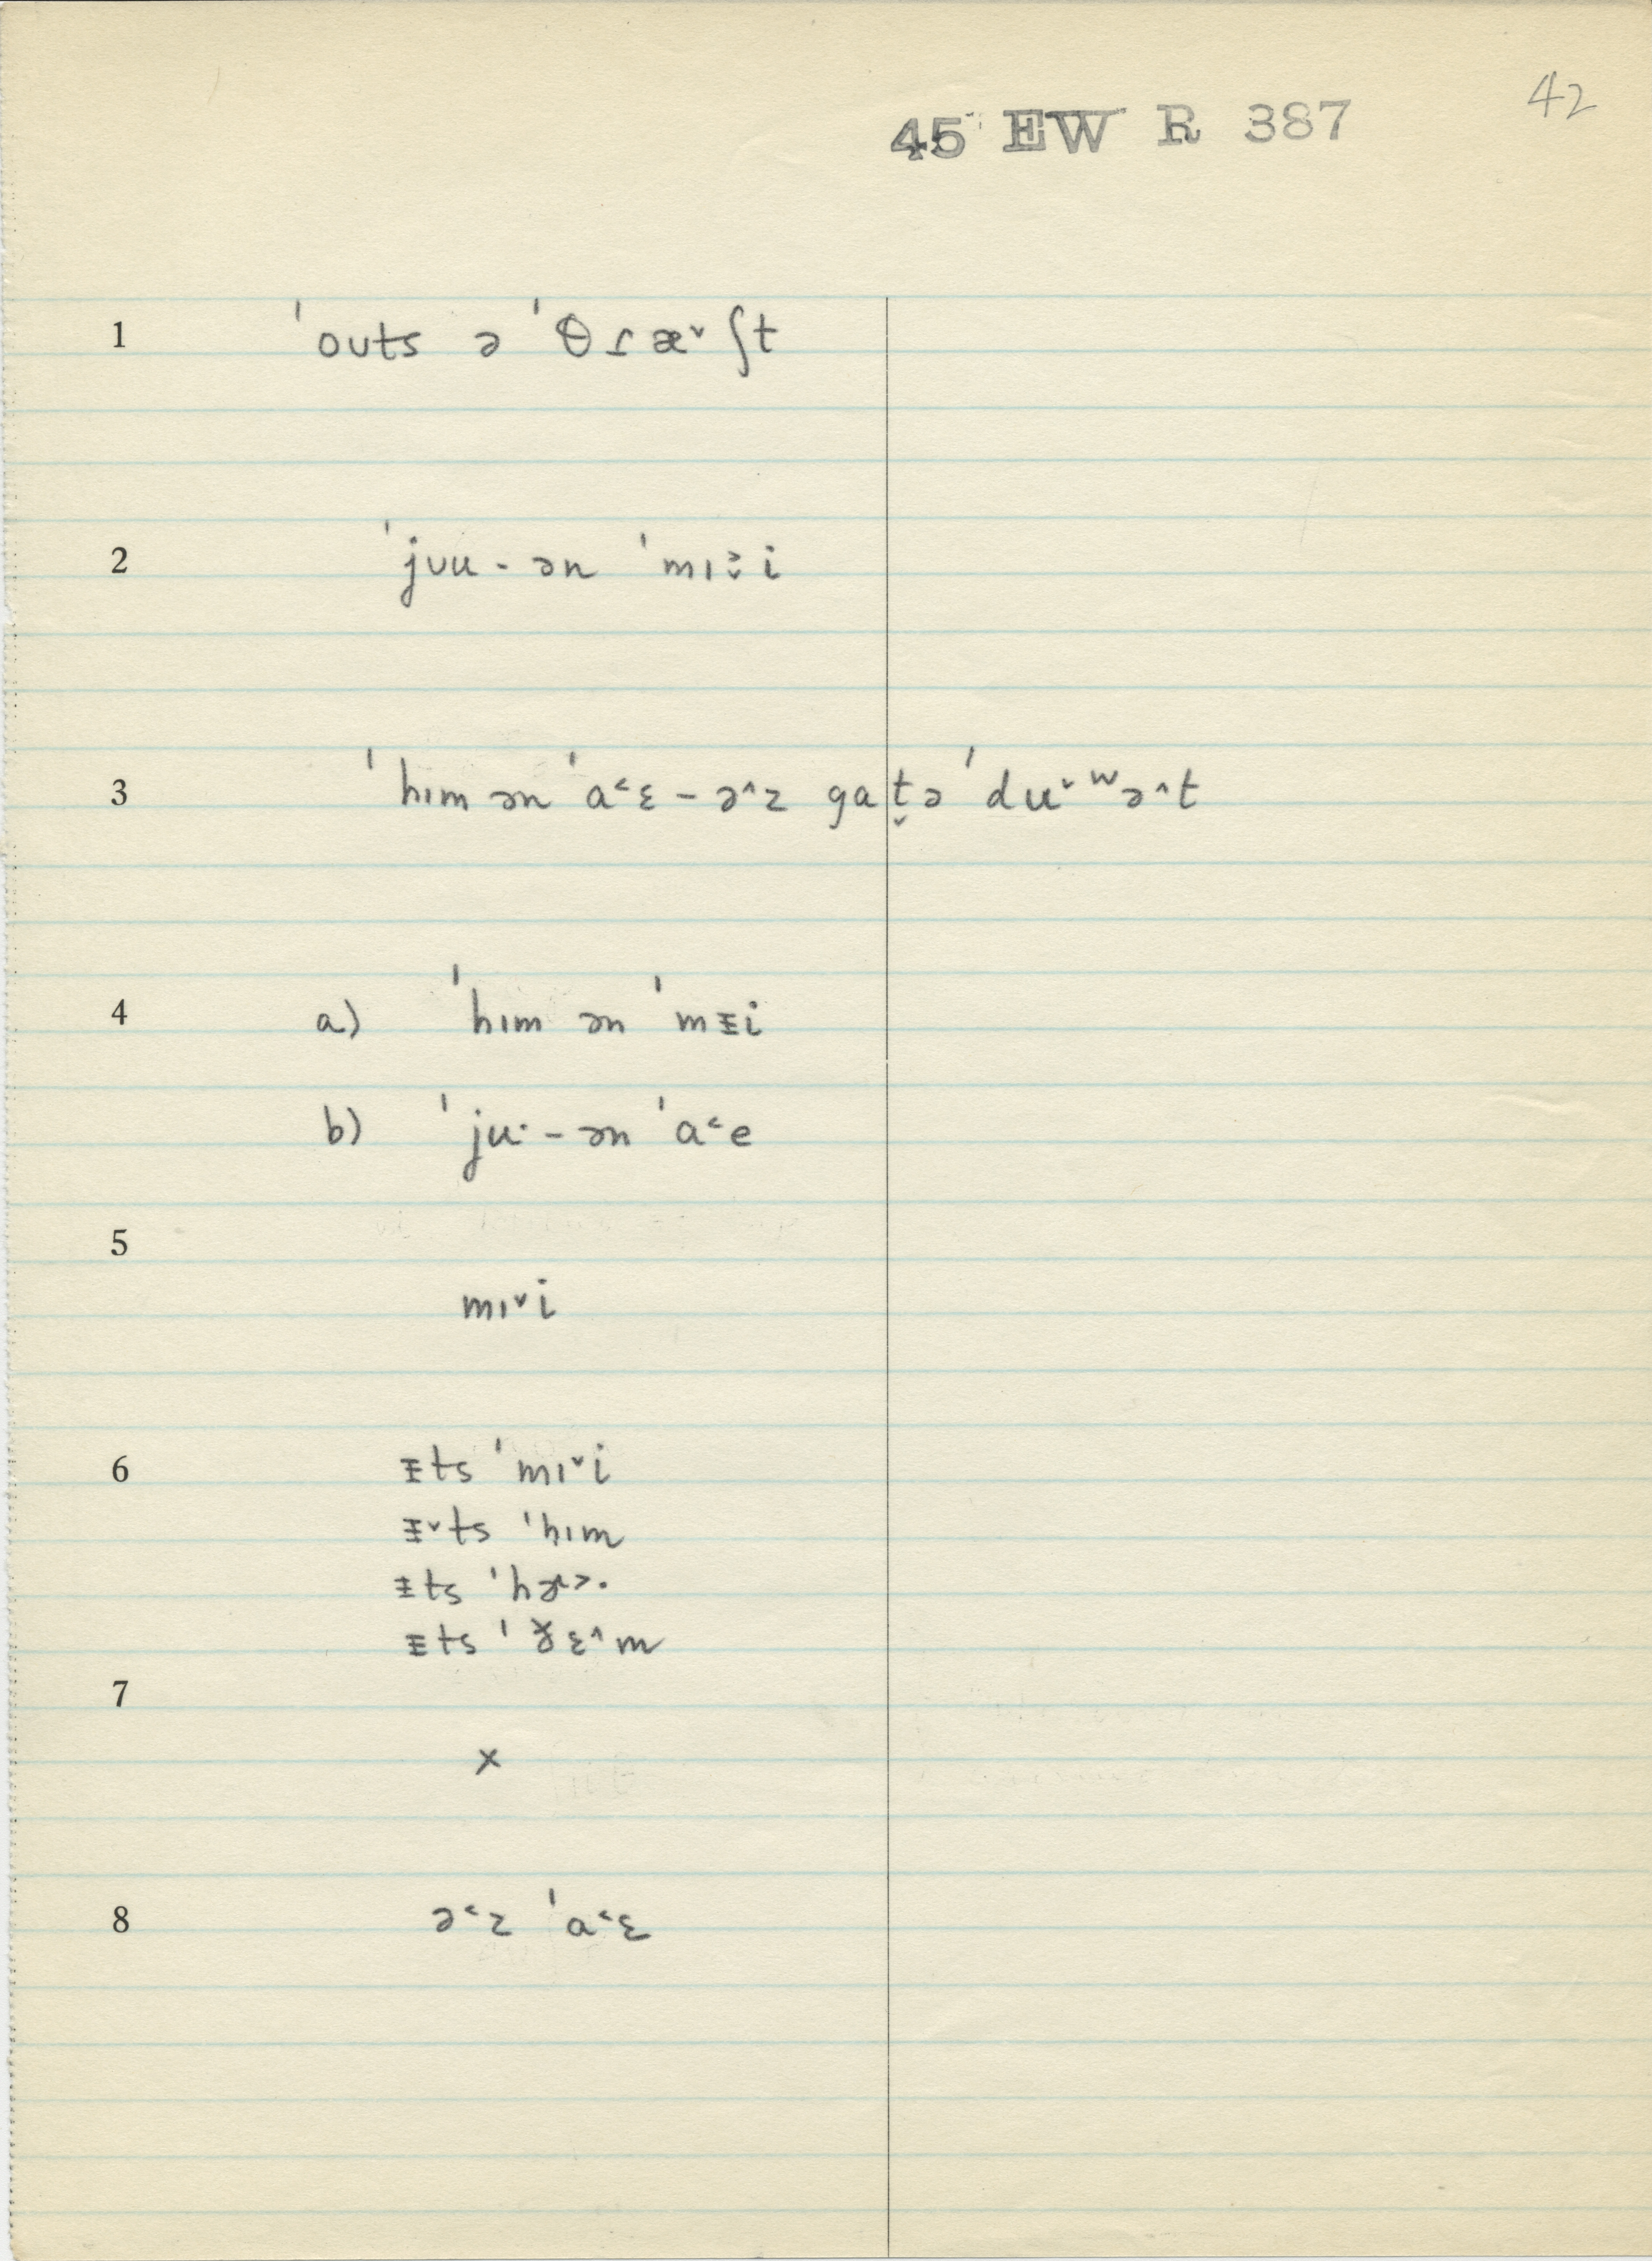 42
45 EW R 387
1 ˈouts ə ˈθɾæ˅ʃt
2 ˈjᴜu - ən ˈmɪ˃̬i
3 ˈhɪm ən ˈa˂ɛ - ə˄z gat̬ə ˈduˑʷə˄t
4 a) ˈhɪm ən ˈmɪ̵i
b) ˈju˙ - ən ˈa˂e
5
mɪ˅i
6 ɪ̵ts ˈmɪ˅i
ɪ̵˅ts ˈhɪm
ɪ̵ts ˈhɚ˃·
ɪ̵ts ˈð̆ɛ˄m
7
×
8 ə˂z ˈa˂ɛ